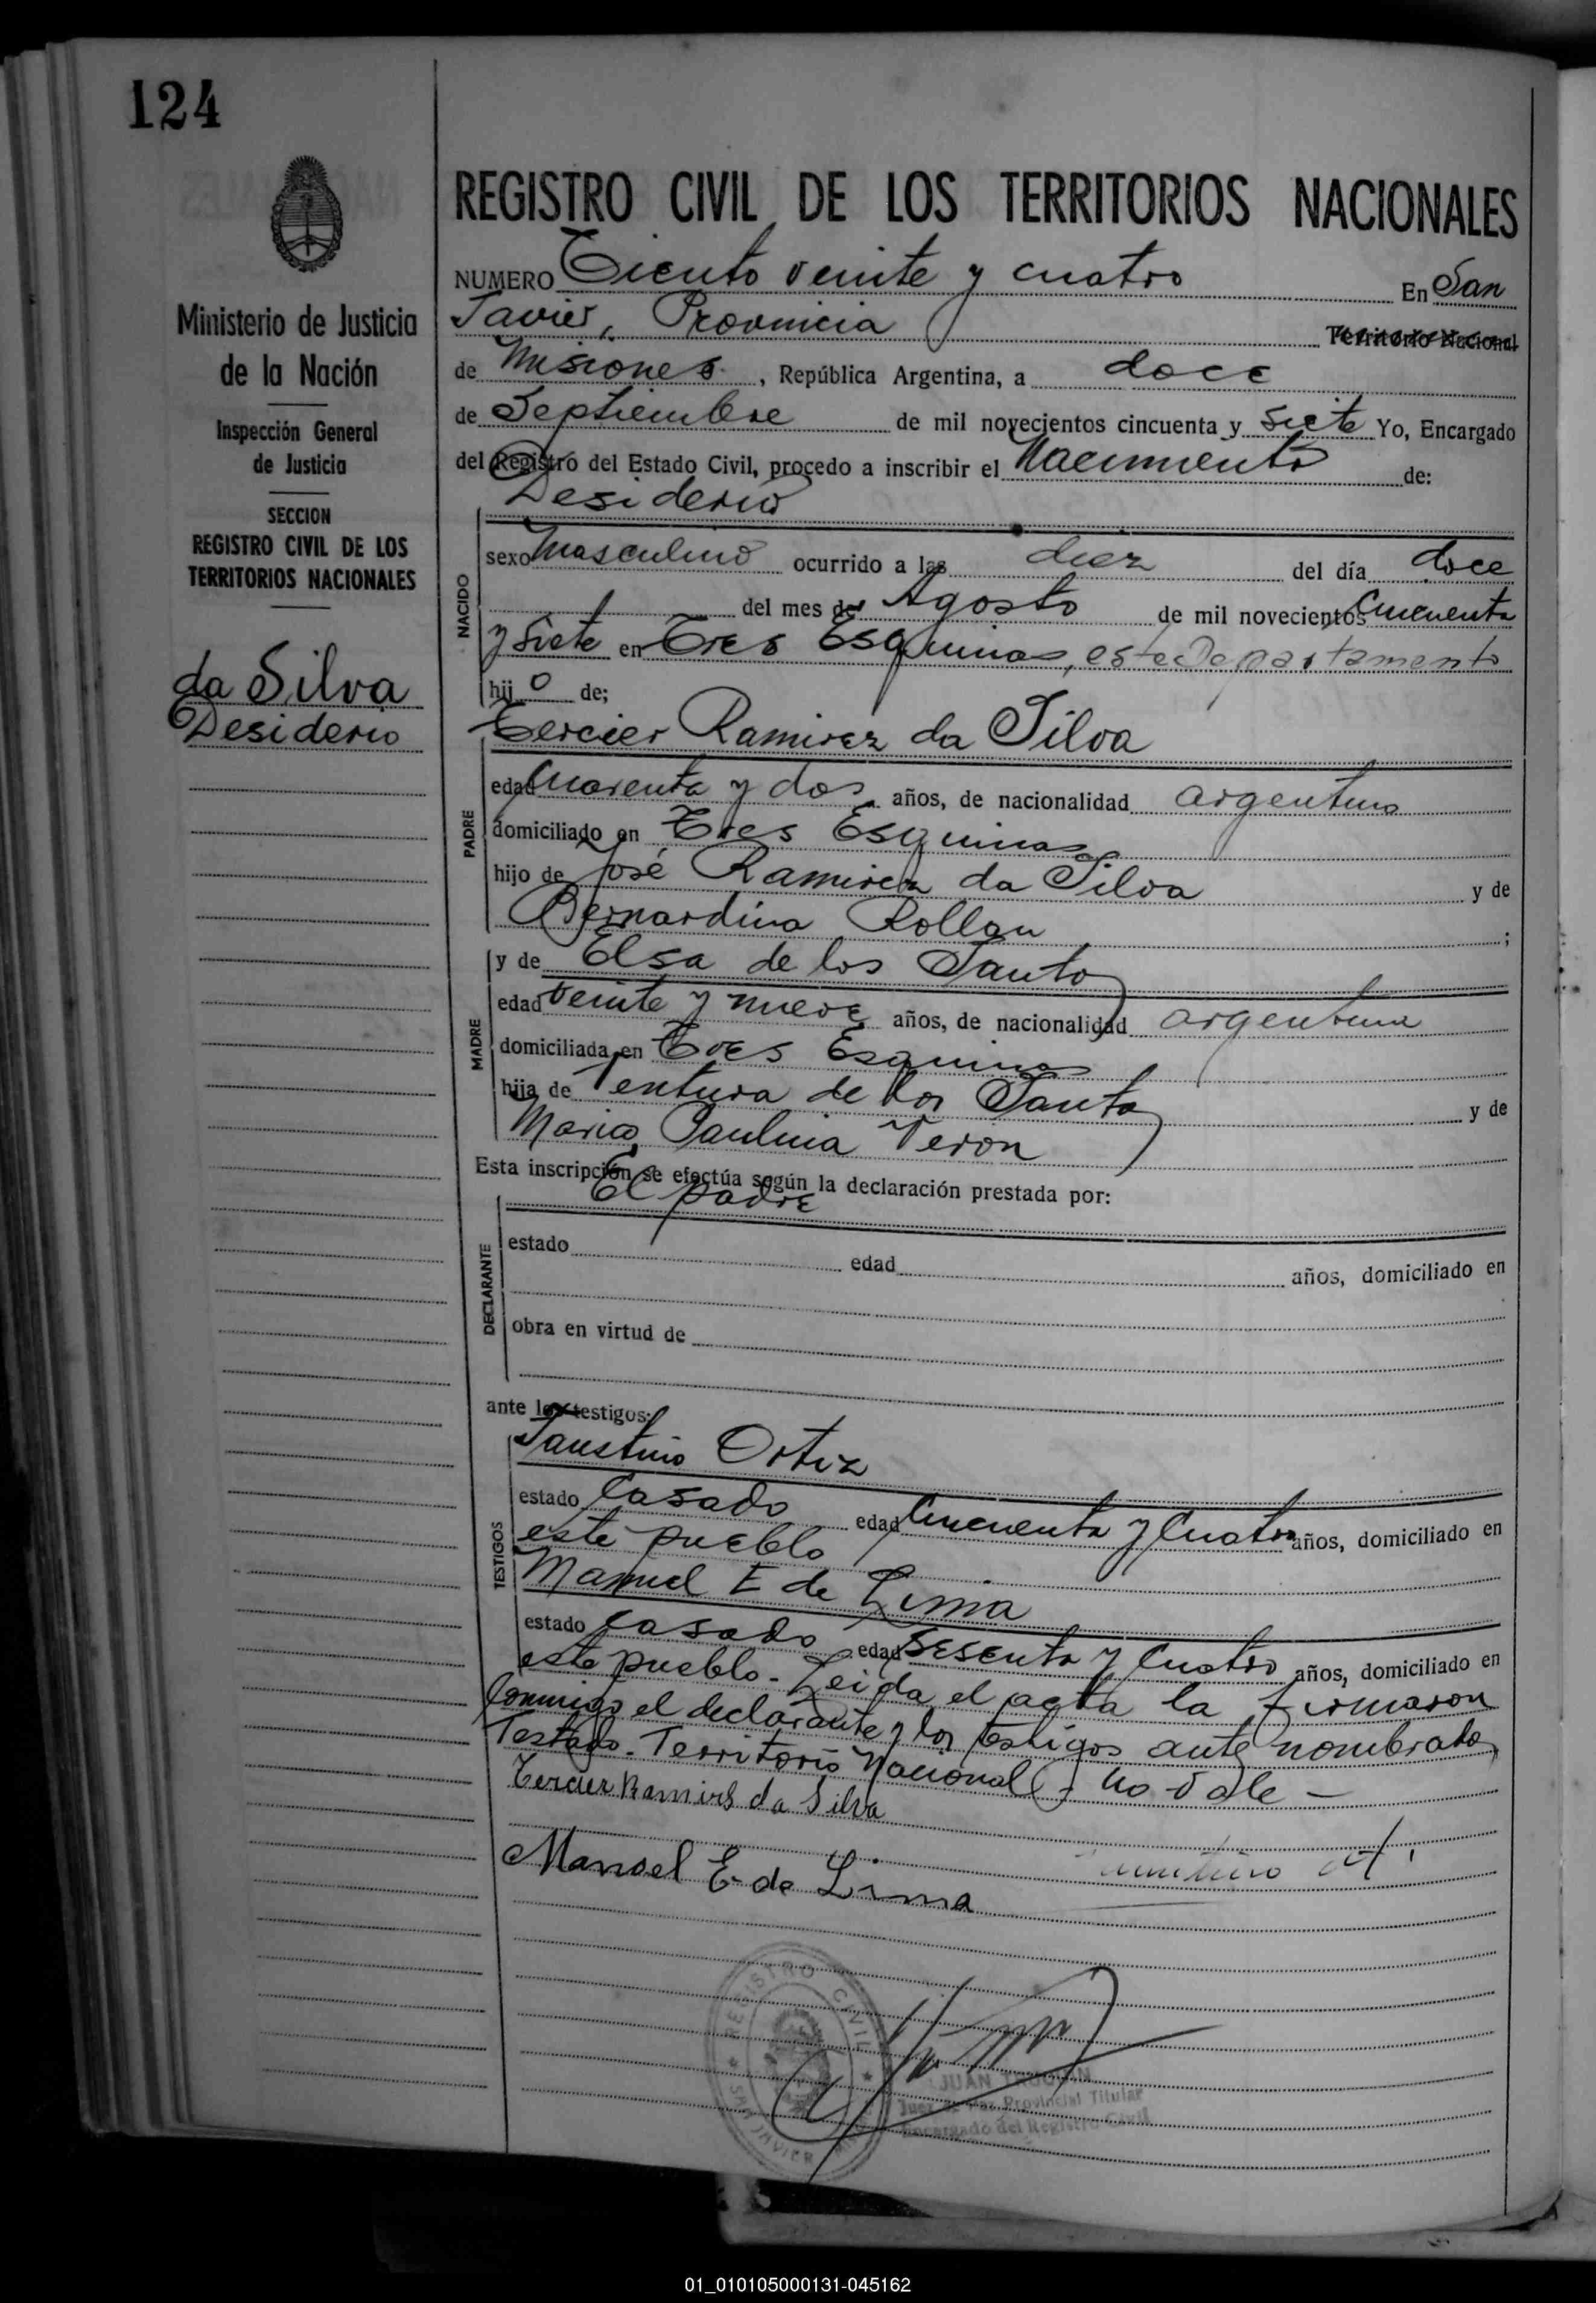 124
Ministerio de Justicia
de la Nación
Inspección General
de Justicia
SECCION
REGISTRO CIVIL DE LOS
TERRITORIOS NACIONALES
da Silva
Desiderio
REGISTRO CIVIL DE LOS TERRITORIOS NACIONALES
NUMERO Ciento veinte y cuatro En San
Javier, Provincia Territorio Nacional
de Misiones, República Argentina, a doce
de Septiembre de mil novecientos cincuenta y siete Yo, Encargado
del Registro del Estado Civil, procedo a inscribir el Nacimiento de:
Desiderio
NACIDO
sexo Masculino ocurrido a las diez del día doce
del mes de Agosto de mil novecientos Cincuenta
y Siete en Tres Esquinas, este Departamento
hijo de;
Tercier Ramirez da Silva
PADRE
edad Cuarenta y dos años, de nacionalidad argentina
domiciliado en Tres Esquinas
hijo de José Ramirez da Silva y de
Bernardina Rollan ;
y de Elsa de los Santos
MADRE
edad veinte y nueve años, de nacionalidad argentina
domiciliada en Tres Esquinas
hija de Ventura de los Santos y de
Maria Paulina Veron
Esta inscripción se efectúa según la declaración prestada por:
El padre
DECLARANTE
estado edad años, domiciliado en
obra en virtud de
ante los testigos:
Faustino Ortiz
TESTIGOS
estado Casado edad Cincuenta y Cuatro años, domiciliado en
este pueblo
Manuel E de Lima
estado Casado edad Sesenta y Cuatro años, domiciliado en
este pueblo - Leida el acta la firmaron
Conmigo el declarante y los testigos ante nombrados
Testado - Territorio Nacional - No vale -
Tercier Ramires da Silva
Manoel E. de Lima
REGISTRO CIVIL
SAN JAVIER
JUAN
Juez de Paz Provincial Titular
Encargado del Registro Civil
01_010105000131-045162